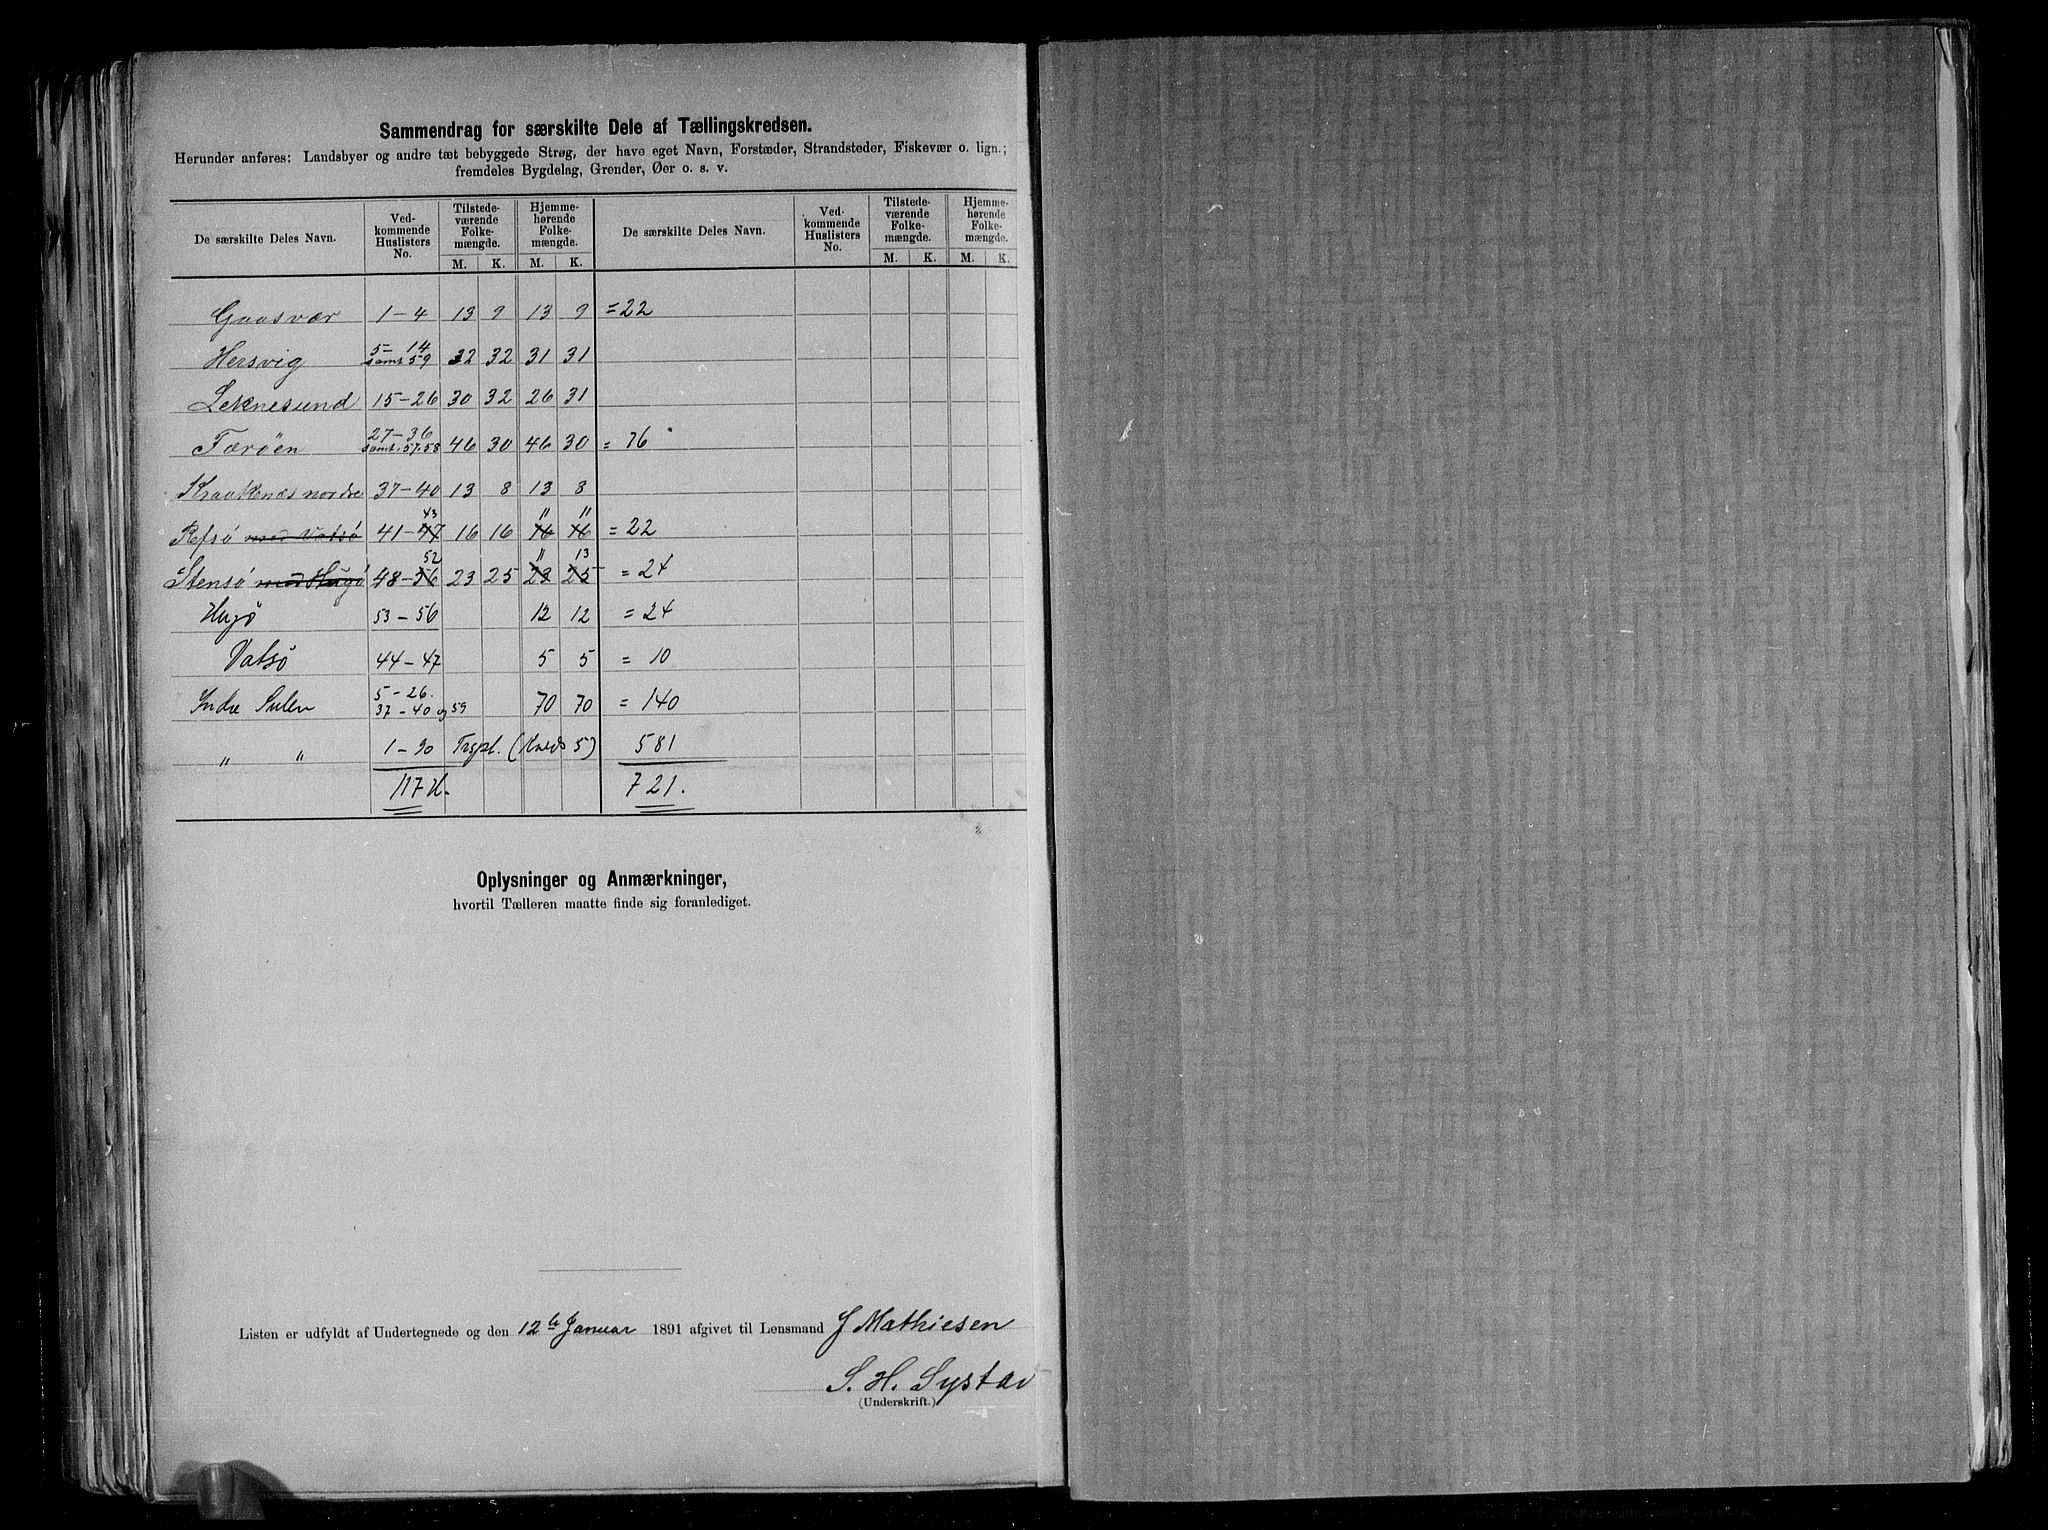 Sammendrag for særskilte Dele af Tællingskredsen.
Herunder anføres: Landsbyer og andre tæt bebyggede Strøg, der have eget Navn, Forstæder, Strandsteder, Fiskevær o. lign.;
fremdeles Bygdelag, Grender, Øer o. s. v.
De særskilte Deles Navn. Ved-kommende Huslisters No. Tilstede-værende Folke-mængde. Hjemme-hørende Folke-mængde. De særskilte Deles Navn. Ved-kommende Huslisters No. Tilstede-værende Folke-mængde. Hjemme-hørende Folke-mængde.
M. K. M. K. M. K. M. K.
Gaasvær 1-4 13 9 13 9 = 22
Hersvig 5-14 samt 59 32 32 31 31
Leknesund 15-26 30 32 26 31
Færöen 27-36 samt 57.58 46 30 46 30 = 76
Kraakenæs nordre 37-40 13 8 13 8
43 " "
Refsö med Vatsö 41-47 16 16 16 16 = 22
52 " 13
Stensö med Hugö 48-56 23 25 23 25 = 24
Hugö 53-56 12 12 = 24
Vatsö 44-47 5 5 = 10
Indre Sulen 5-26. 37-40 og 59 70 70 = 140
" " 1-30 (Kreds 5) 581
117 H. 721.
Oplysninger og Anmærkninger,
hvortil Tælleren maatte finde sig foranlediget.
Listen er udfyldt af Undertegnede og den 12te Januar 1891 afgivet til Lensmand J Mathiesen
S. H. Systad
(Underskrift.)